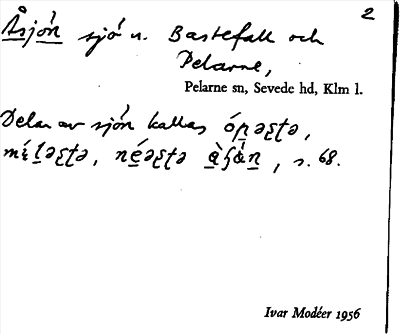 2
Åsjön sjö n. Bastefall och
Pelarne,
Pelarne sn, Sevede hd, Klm l.
Delar av sjön kallas
, s. 68.
Ivar Modéer 1956